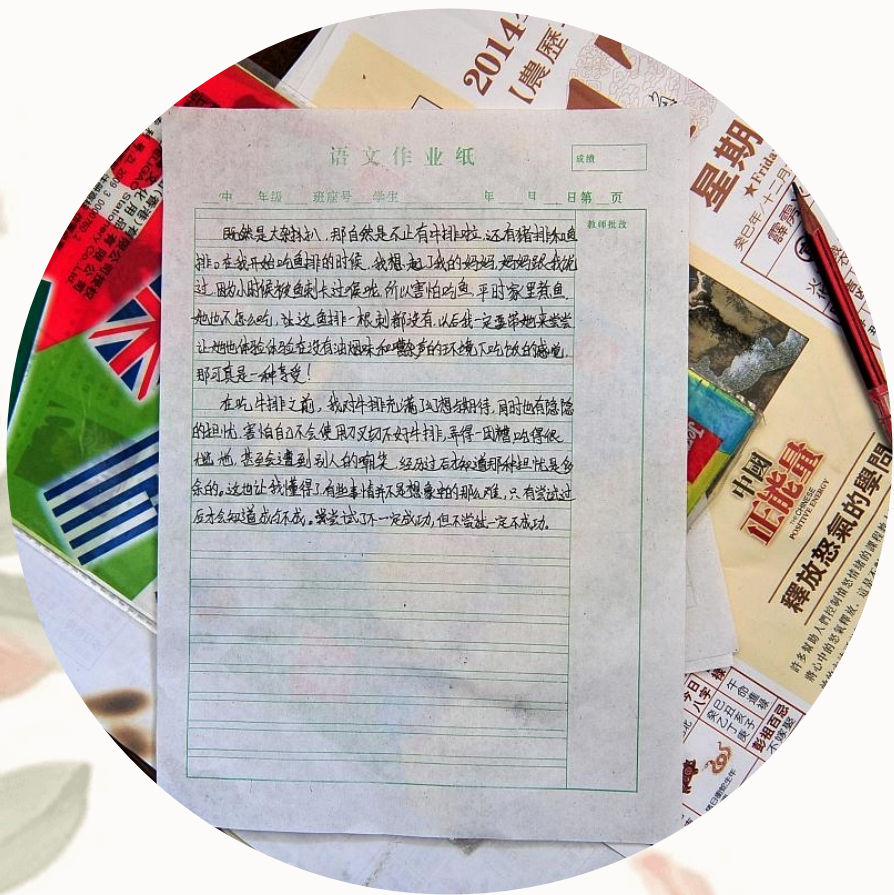 语文作业纸
成绩
中 年级 班座号 学生 年 月 日第 页
教师批改
既然是大杂排扒，那自然是不止有牛排啦，还有猪排和鱼
排。在我开始吃鱼排的时候，我想起了我的妈妈，妈妈跟我说
过，因为小时候被鱼刺卡过喉咙，所以害怕吃鱼，平时家里煮鱼
她也不怎么吃，让这鱼排一根刺都没有，以后我一定要带她来尝尝
让她也体验体验在没有油烟味和嘈杂声的环境下吃饭的感觉，
那可真是一种享受！
在吃牛排之前，我对牛排充满了幻想与期待，同时也有隐隐
的担忧，害怕自己不会使用刀叉切不好牛排，弄得一团糟，吃得很
尴尬，甚至会遭到别人的嘲笑，经历过后才知道那种担忧是多
余的。这也让我懂得了有些事情并不是想象中的那么难，只有尝试过
后才会知道成与不成。尝试了不一定成功，但不尝试一定不成功。
2014
【農歷
星期
★Frida
癸巳年 十二月
中國
正能量
THE CHINESE
POSITIVE ENERGY
釋放怒氣的學問
許多幫助人們控制憤怒情緒的課程
將心中的怒氣釋放，這是不
今日
八字
癸巳
乙丑
丁亥
庚子
彭祖百忌
不嫁娶